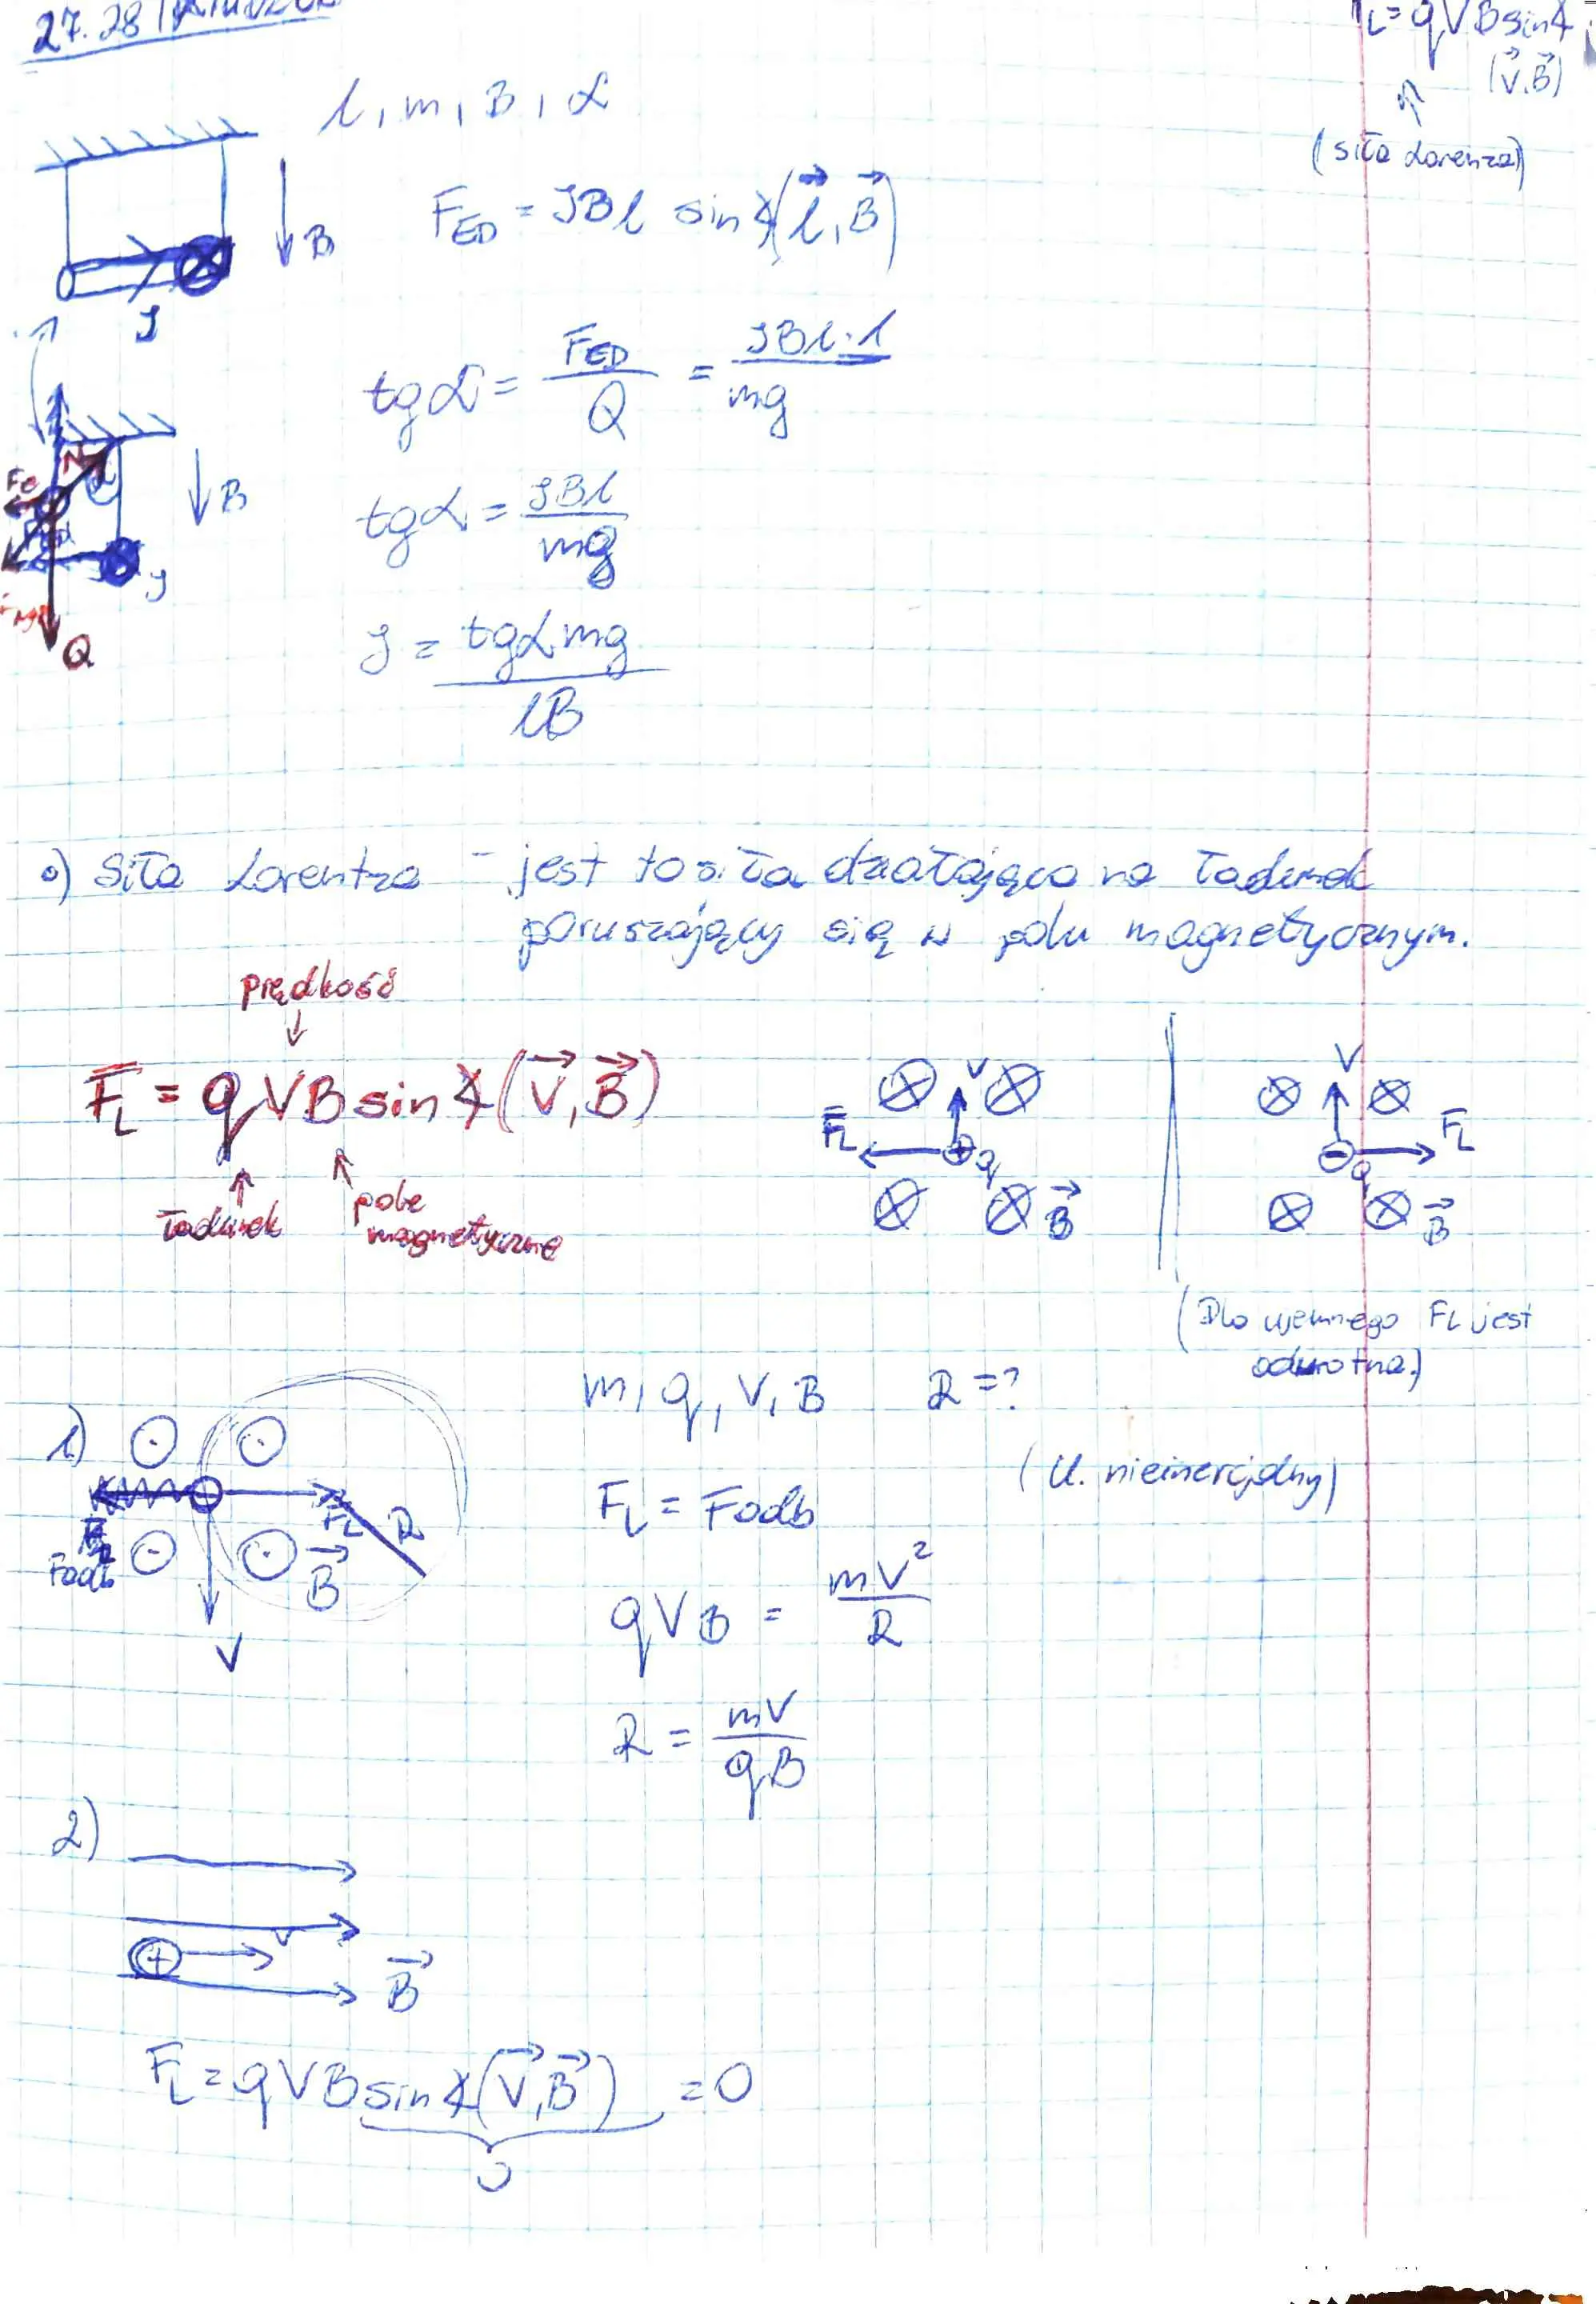 27.28
F_L = qVB sin∢
(v⃗, B⃗)
(siła Lorenza)
l, m, B, α
F_ED = JBl sin∢(l⃗, B⃗)
B
J
tgα = F_ED / Q = JBl·1 / mg
N
α
B
J
Q
tgα = JBl / mg
J = tgα mg / lB
•) Siła Lorentza - jest to siła działająca na ładunek
poruszający się w polu magnetycznym.
prędkość
F_L = qVB sin∢(V⃗, B⃗)
ładunek
pole
magnetyczne
F_L V q B⃗
V F_L q B⃗
(Dla ujemnego F_L jest
odwrotna.)
1)
m, q, V, B R = ?
(U. nieinercjalny)
F_L = Fodb
F_L R
Fodb
B⃗
V
qVB = mV² / R
R = mV / qB
2)
v
+
B⃗
F_L = qVB sin∢(V⃗, B⃗) = 0
0